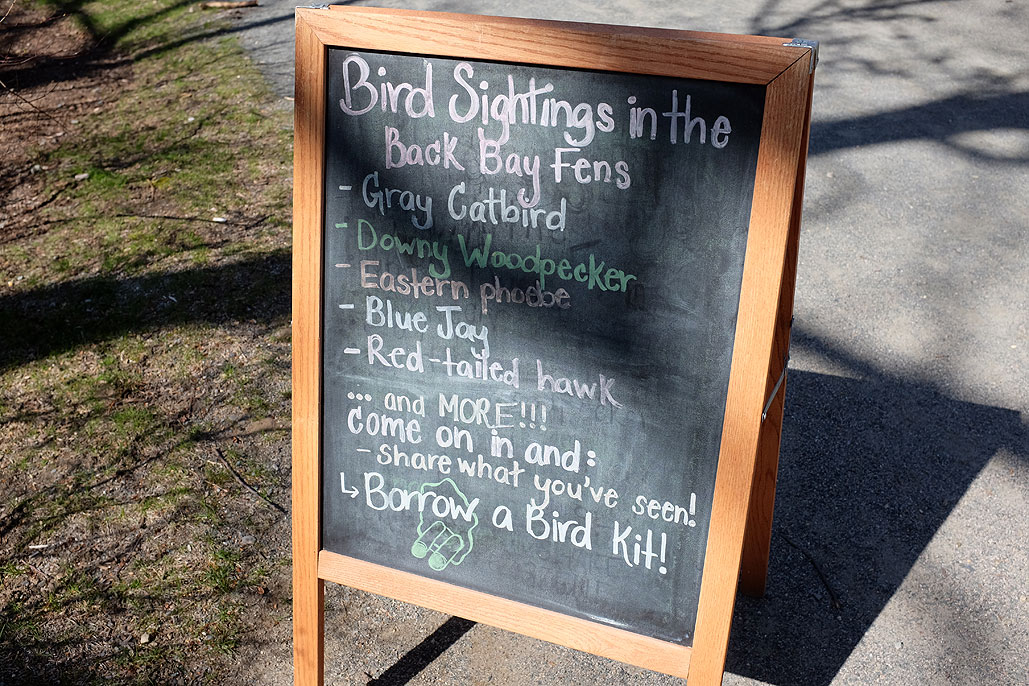 Bird Sightings in the
Back Bay Fens
- Gray Catbird
- Downy Woodpecker
- Eastern phoebe
- Blue Jay
- Red-tailed hawk
... and MORE!!!
Come on in and:
- share what you've seen!
↳ Borrow a Bird Kit!